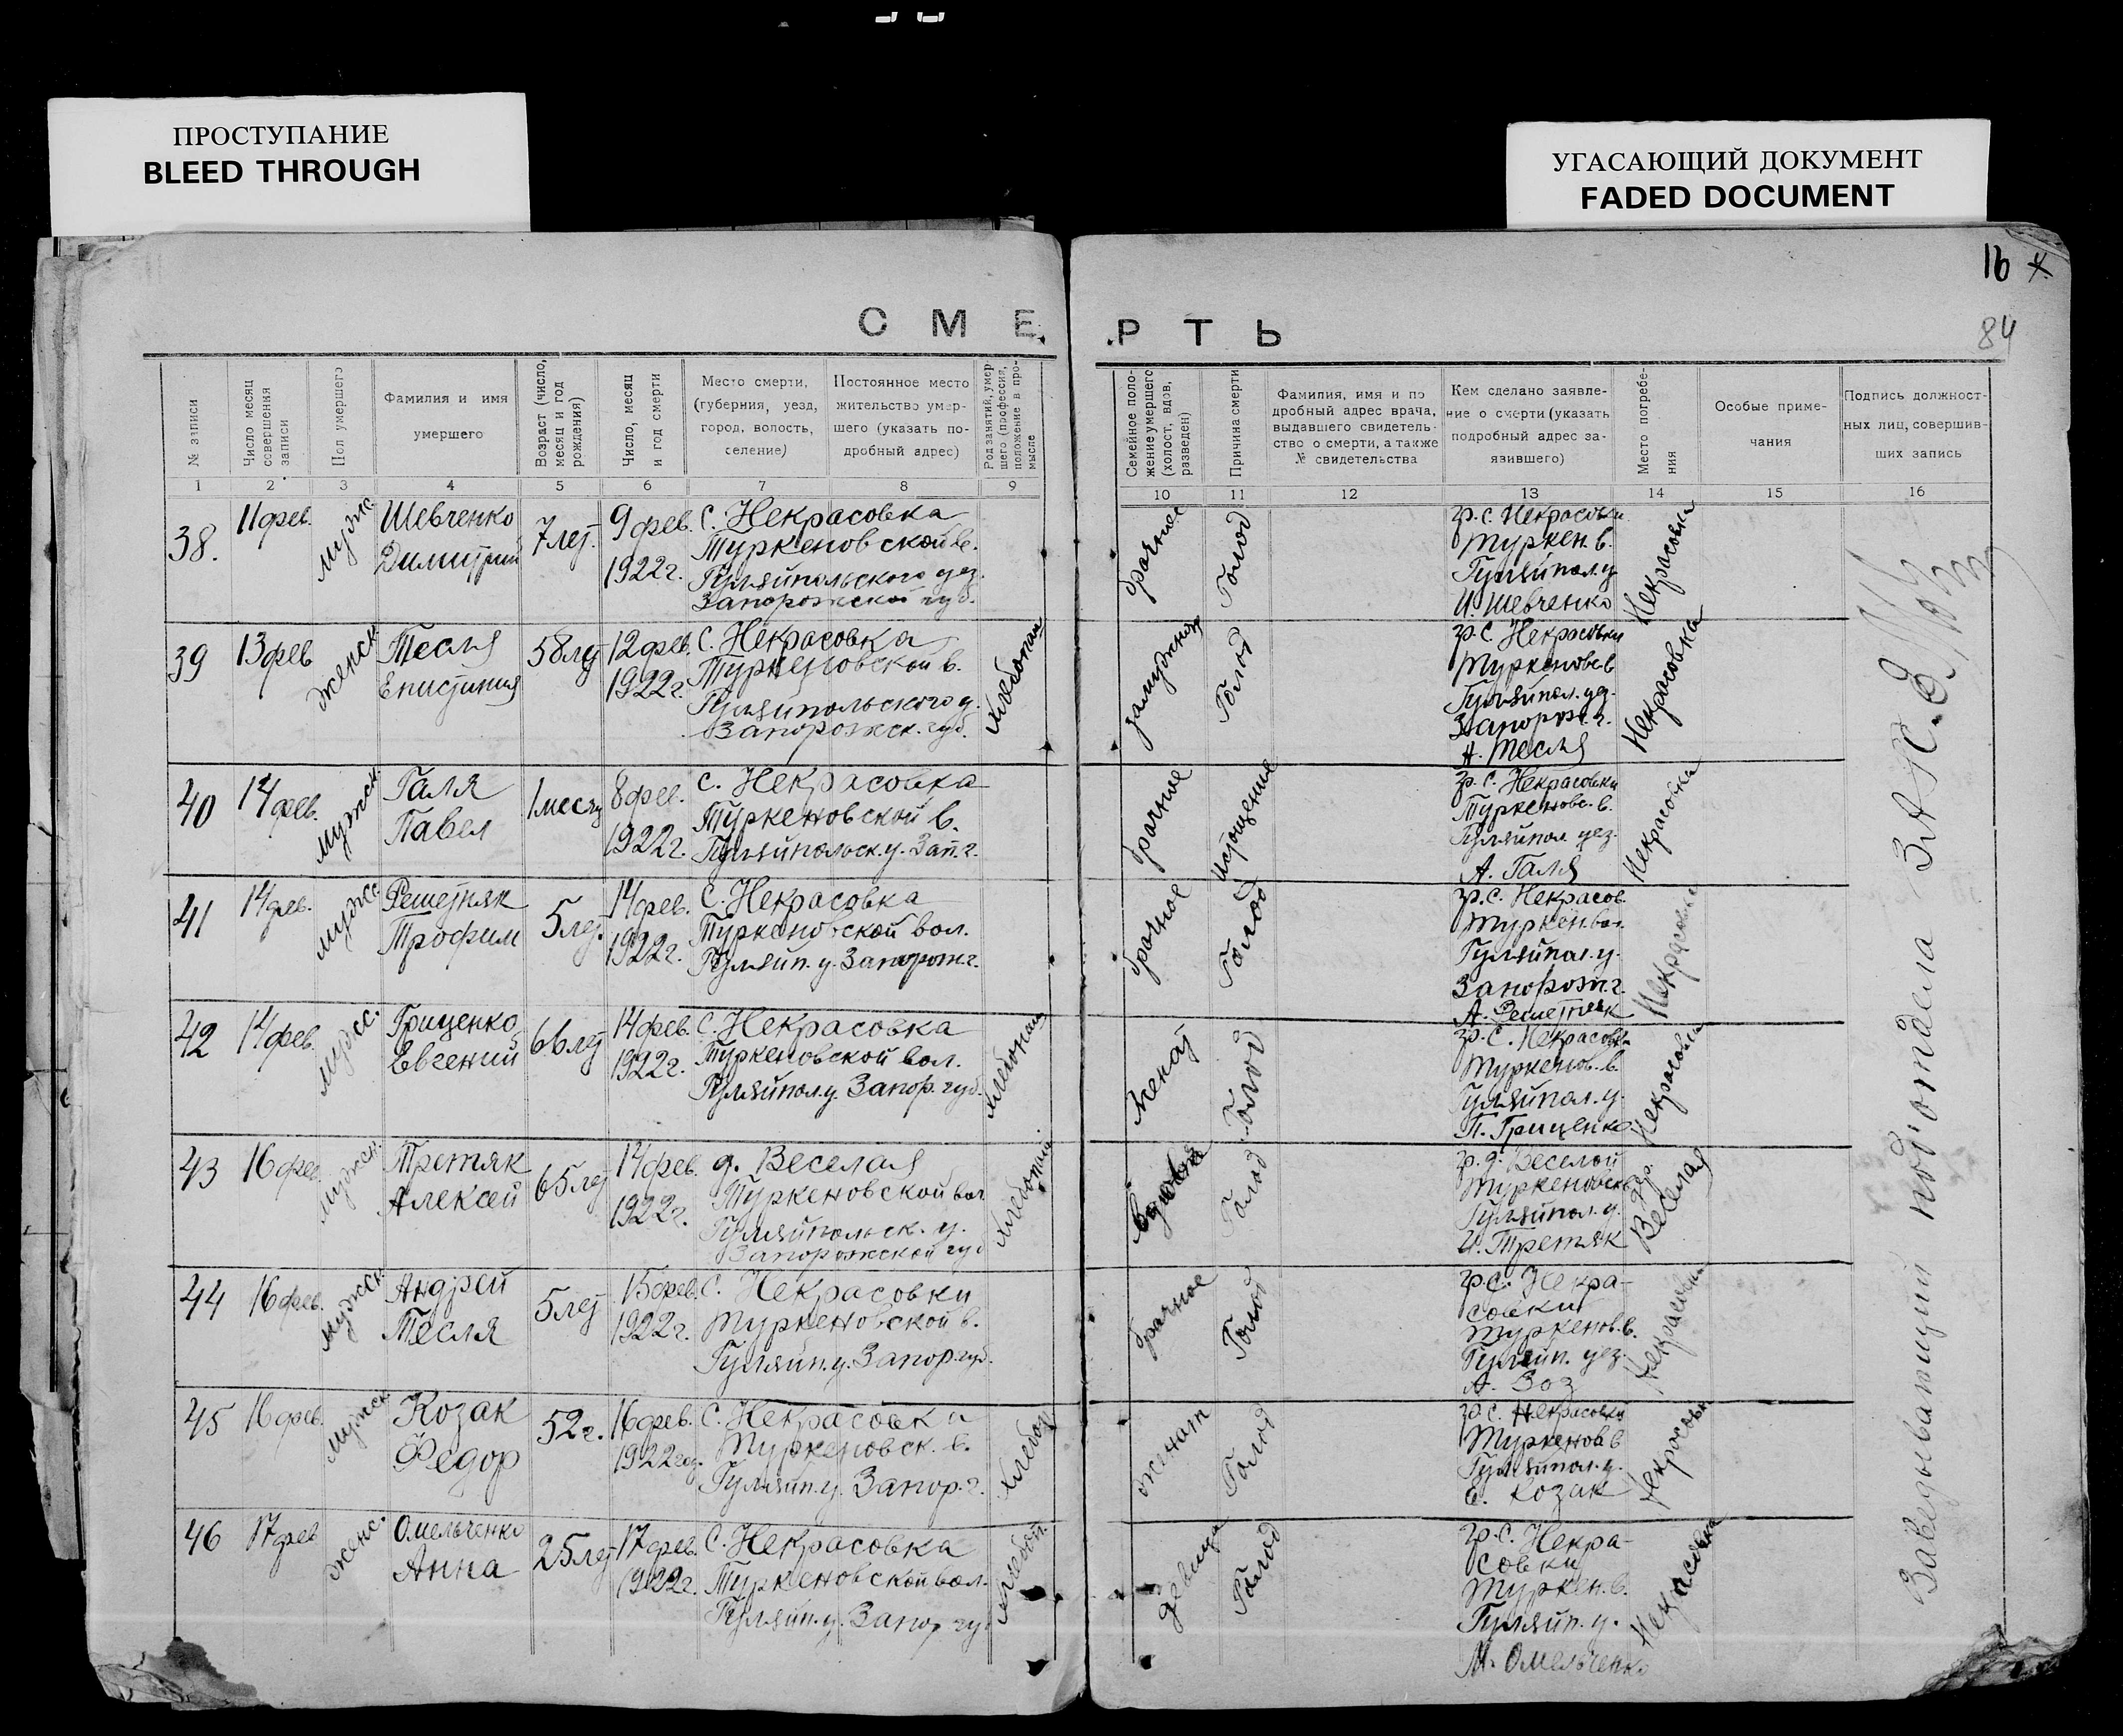 ПРОСТУПАНИЕ
BLEED THROUGH
УГАСАЮЩИЙ ДОКУМЕНТ
FADED DOCUMENT
16 х
84
СМЕРТЬ
№ записи
Число месяц совершения записи
Пол умершего
Фамилия и имя умершего
Возраст (число, месяц и год рождения)
Число, месяц и год смерти
Место смерти, (губерния, уезд, город, волость, селение)
Постоянное место жительство умершего (указать подробный адрес)
Род занятий, умершего (профессия, положение в промысле
Семейное положение умершего (холост, вдов, разведен)
Причина смерти
Фамилия, имя и подробный адрес врача, выдавшего свидетельство о смерти, а также № свидетельства
Кем сделано заявление о смерти (указать подробный адрес заявившего)
Место погребения
Особые примечания
Подпись должностных лиц, совершивших запись
1 2 3 4 5 6 7 8 9 10 11 12 13 14 15 16
38. 11 фев. мужс. Шевченко Димитрий 7 лет. 9 фев. 1922 г.
с. Некрасовка
Туркеновской в.
Гуляйпольского уез.
Запорожской губ.
брачная Голод
гр. с. Некрасовки
Туркен. в.
Гуляйпол. у.
И. Шевченко
Некрасовка
39 13 фев женск Тесля Епистиния 58 лет 12 фев. 1922 г.
с. Некрасовка
Туркеновской в.
Гуляйпольского у.
Запорожск. губ.
хлебопаш
замужная Голод
гр. с. Некрасовки
Туркеновс в
Гуляйпол. уез.
Запорож. г.
Н. Тесля
Некрасовка
40 14 фев. мужск. Галя Павел 1 месяц 8 фев. 1922 г.
с. Некрасовка
Туркеновской в.
Гуляйпольск. у. Зап. г.
брачное Истощение
гр. с. Некрасовки
Туркеновс. в.
Гуляйпол уез.
А. Галя
Некрасовка
41 14 фев. мужс. Решетняк Трофим 5 лет. 14 фев. 1922 г.
с. Некрасовка
Туркеновской вол.
Гуляйп. у. Запорож. г.
брачное Голод
гр. с. Некрасов.
Туркен. вол.
Гуляйпол. у.
Запорож. г.
А. Решетняк
Некрасовка
42 14 фев. мужс. Гриценко Евгений 66 лет 14 фев. 1922 г.
с. Некрасовка
Туркеновской вол.
Гуляйпол. у. Запор. губ.
хлебопаш
женат Голод
гр. с. Некрасовки
Туркенов. в.
Гуляйпол. у.
П. Гриценко
Некрасовка
43 16 фев. мужск. Третяк Алексей 65 лет 14 фев. 1922 г.
д. Веселая
Туркеновской вол
Гуляйпольск. у.
Запорожской губ
хлебопаш
Голод
гр. д. Веселой
Туркеновск
Гуляйпол. у.
И. Третяк
др. Веселая
44 16 фев. мужск. Андрей Тесля 5 лет 15 фев. 1922 г.
с. Некрасовки
Туркеновской в.
Гуляйп. у. Запор. губ.
брачное Голод
гр. с. Некра-
совки
Туркенов. в.
Гуляйп. уез.
А. Воз
Некрасовки
45 16 фев. мужск Козак Федор 52 г. 16 фев. 1922 год.
с. Некрасовки
Туркеновск. в.
Гуляйп. у. Запор. г.
хлебоп
женат Голод
гр. с. Некрасовки
Туркенов в
Гуляйпол. у.
Е. Козак
Некрасовк
46 17 фев женс. Омельченко Анна 25 лет 17 фев. 1922 г.
с. Некрасовка
Туркеновской вол.
Гуляйп. у. Запор. гу.
хлебоп.
девица Голод
гр. с. Некра-
совки
Туркен. в.
Гуляйп. у.
М. Омельченко
Некрасовка
Заведывающий подотдела ЗАГС.